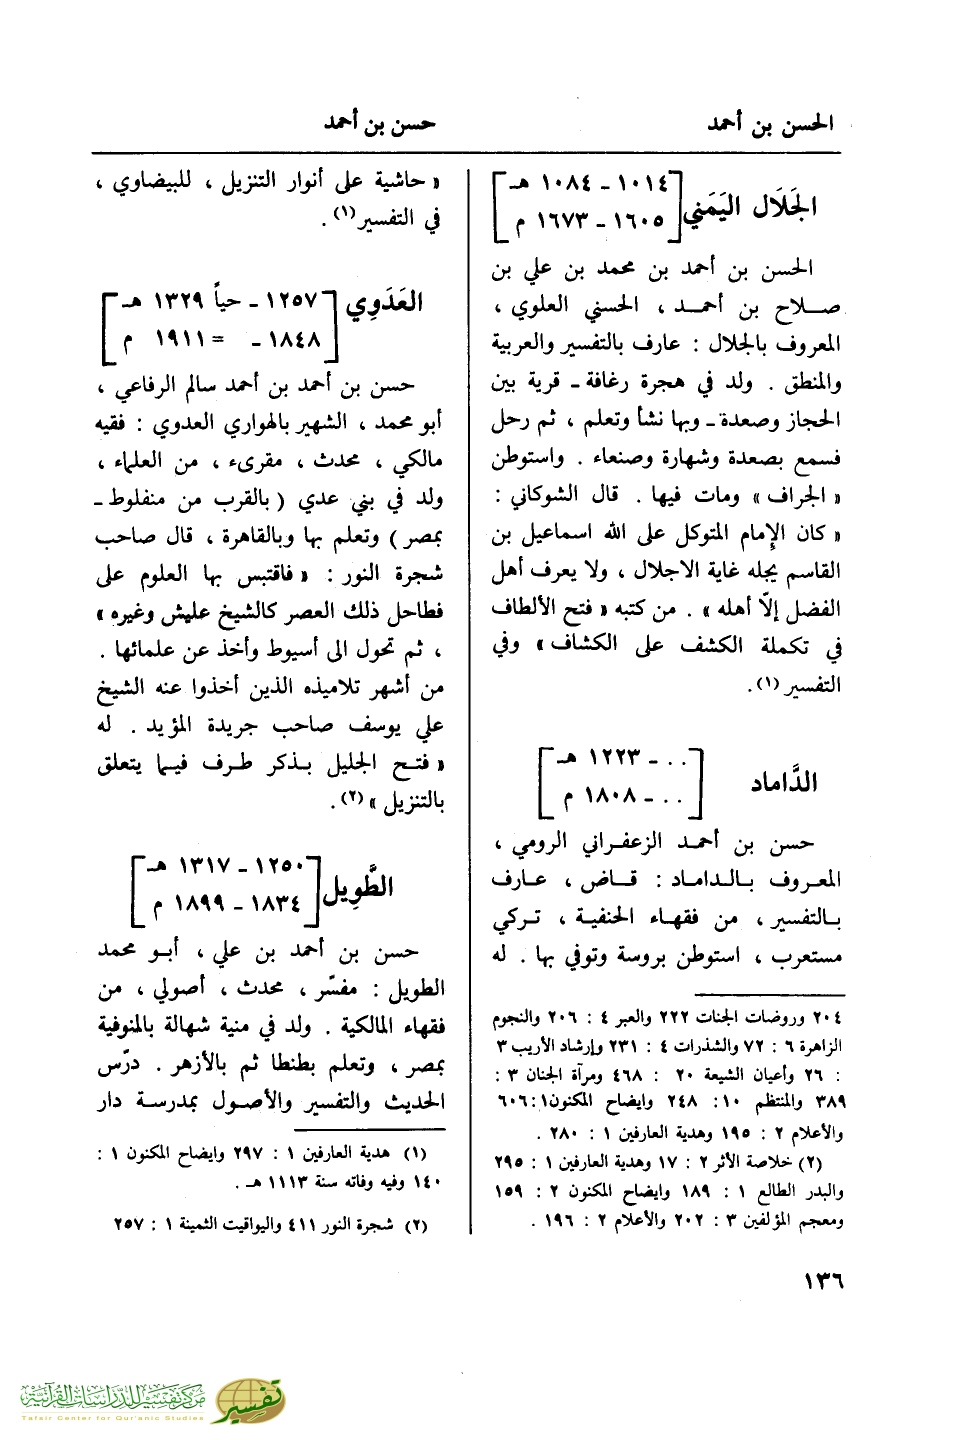 الحسن بن أحمد
حسن بن أحمد
الجَلَال اليَمَني
[ ١٠١٤ - ١٠٨٤ هـ
١٦٠٥ - ١٦٧٣ م ]
الحسن بن أحمد بن محمد بن علي بن
صلاح بن أحمد ، الحسني العلوي ،
المعروف بالجلال : عارف بالتفسير والعربية
والمنطق . ولد في هجرة رغافة - قرية بين
الحجاز وصعدة - وبها نشأ وتعلم ، ثم رحل
فسمع بصعدة وشهارة وصنعاء . واستوطن
« الجراف » ومات فيها . قال الشوكاني :
« كان الإمام المتوكل على الله اسماعيل بن
القاسم يجله غاية الاجلال ، ولا يعرف أهل
الفضل إلّا أهله » . من كتبه « فتح الألطاف
في تكملة الكشف على الكشاف » وفي
التفسير (١) .
الدَّاماد
[ . . - ١٢٢٣ هـ
. . - ١٨٠٨ م ]
حسن بن أحمد الزعفراني الرومي ،
المعروف بالداماد : قاض ، عارف
بالتفسير ، من فقهاء الحنفية ، تركي
مستعرب ، استوطن بروسة وتوفي بها . له
٢٠٤ وروضات الجنات ٢٢٢ والعبر ٤ : ٢٠٦ والنجوم
الزاهرة ٦ : ٧٢ والشذرات ٤ : ٢٣١ وإرشاد الأريب ٣
: ٢٦ وأعيان الشيعة ٢٠ : ٤٦٨ ومرآة الجنان ٣ :
٣٨٩ والمنتظم ١٠ : ٢٤٨ وايضاح المكنون ١ : ٦٠٦
والأعلام ٢ : ١٩٥ وهدية العارفين ١ : ٢٨٠ .
(٢) خلاصة الأثر ٢ : ١٧ وهدية العارفين ١ : ٢٩٥
والبدر الطالع ١ : ١٨٩ وايضاح المكنون ٢ : ١٥٩
ومعجم المؤلفين ٣ : ٢٠٢ والأعلام ٢ : ١٩٦ .
« حاشية على أنوار التنزيل ، للبيضاوي ،
في التفسير (١) .
العَدَوِي
[ ١٢٥٧ - حياً ١٣٢٩ هـ
١٨٤٨ - = ١٩١١ م ]
حسن بن أحمد بن أحمد سالم الرفاعي ،
أبو محمد ، الشهير بالهواري العدوي : فقيه
مالكي ، محدث ، مقرىء ، من العلماء ،
ولد في بني عدي ( بالقرب من منفلوط -
بمصر ) وتعلم بها وبالقاهرة ، قال صاحب
شجرة النور : « فاقتبس بها العلوم على
فطاحل ذلك العصر كالشيخ عليش وغيره »
، ثم تحول الى أسيوط وأخذ عن علمائها .
من أشهر تلاميذه الذين أخذوا عنه الشيخ
علي يوسف صاحب جريدة المؤيد . له
« فتح الجليل بذكر طرف فيما يتعلق
بالتنزيل » (٢) .
الطَّوِيل
[ ١٢٥٠ - ١٣١٧ هـ
١٨٣٤ - ١٨٩٩ م ]
حسن بن أحمد بن علي ، أبو محمد
الطويل : مفسّر ، محدث ، أصولي ، من
فقهاء المالكية . ولد في منية شهالة بالمنوفية
بمصر ، وتعلم بطنطا ثم بالأزهر . درّس
الحديث والتفسير والأصول بمدرسة دار
(١) هدية العارفين ١ : ٢٩٧ وايضاح المكنون ١ :
١٤٠ وفيه وفاته سنة ١١١٣ هـ .
(٢) شجرة النور ٤١١ واليواقيت الثمينة ١ : ٢٥٧
١٣٦
مركز تفسير للدراسات القرآنية
Tafsir Center for Qur'anic Studies
تفسير